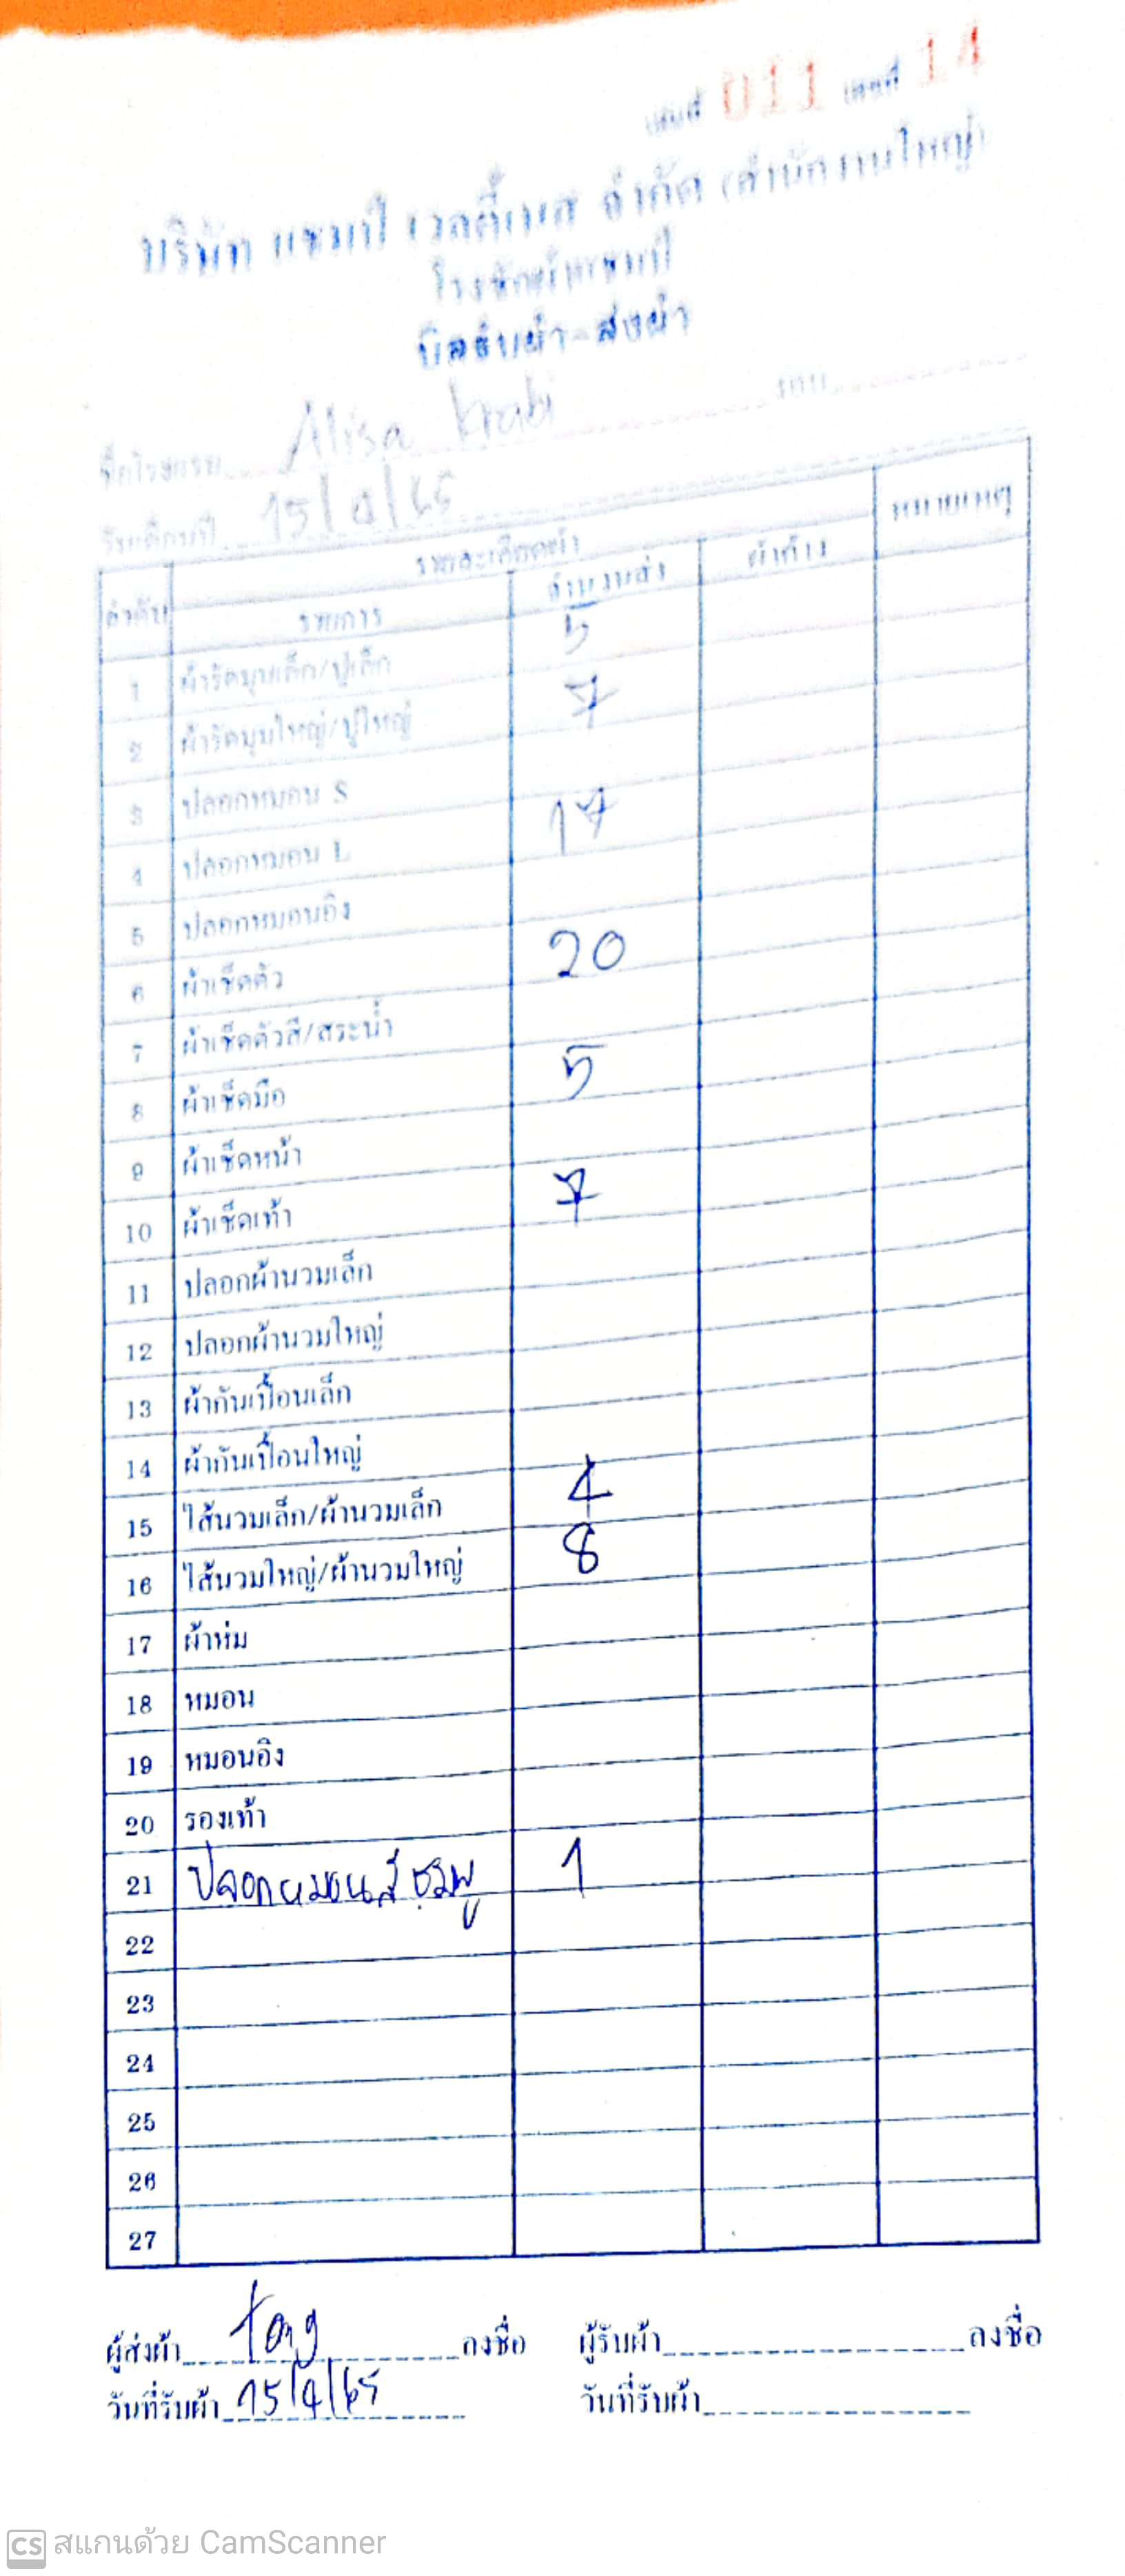 เล่มที่ 011 เลขที่ 14
บริษัท แชมป์ เวลตี้เนส จำกัด (สำนักงานใหญ่)
โรงซักรีดแชมป์
บิลรับผ้า-ส่งผ้า
ชื่อโรงแรม Alisa krabi
วันเดือนปี 15/4/65
ลำดับ รายละเอียดผ้า หมายเหตุ
รายการ จำนวนส่ง ผ้าค้าง
1 ผ้ารัดมุมเล็ก/ปูเล็ก 5
2 ผ้ารัดมุมใหญ่/ปูใหญ่ 7
3 ปลอกหมอน S
4 ปลอกหมอน L 17
5 ปลอกหมอนอิง
6 ผ้าเช็ดตัว 20
7 ผ้าเช็ดตัวสี/สระน้ำ
8 ผ้าเช็ดมือ 5
9 ผ้าเช็ดหน้า
10 ผ้าเช็ดเท้า 7
11 ปลอกผ้านวมเล็ก
12 ปลอกผ้านวมใหญ่
13 ผ้ากันเปื้อนเล็ก
14 ผ้ากันเปื้อนใหญ่
15 ไส้นวมเล็ก/ผ้านวมเล็ก 4
16 ไส้นวมใหญ่/ผ้านวมใหญ่ 8
17 ผ้าห่ม
18 หมอน
19 หมอนอิง
20 รองเท้า
21 ปลอกหมอนสีชมพู 1
22
23
24
25
26
27
ผู้ส่งผ้า tong ลงชื่อ ผู้รับผ้า ลงชื่อ
วันที่รับผ้า 15/4/65 วันที่รับผ้า
CS สแกนด้วย CamScanner